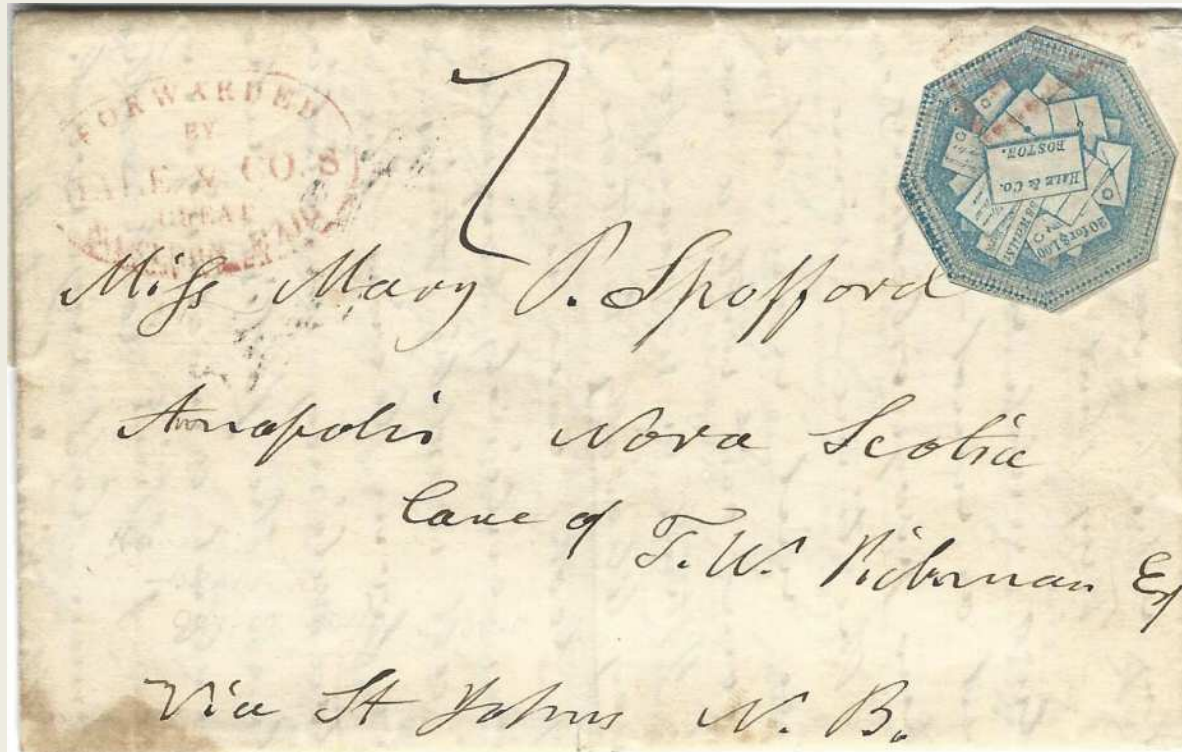 FORWARDED
BY
HALE & CO.'S
GREAT
7
HALE & CO.
BOSTON.
20 for $1.00
Miss Mary P. Spofford
Annapolis Nova Scotia
Care of T. W.
Via St Johns N. B.